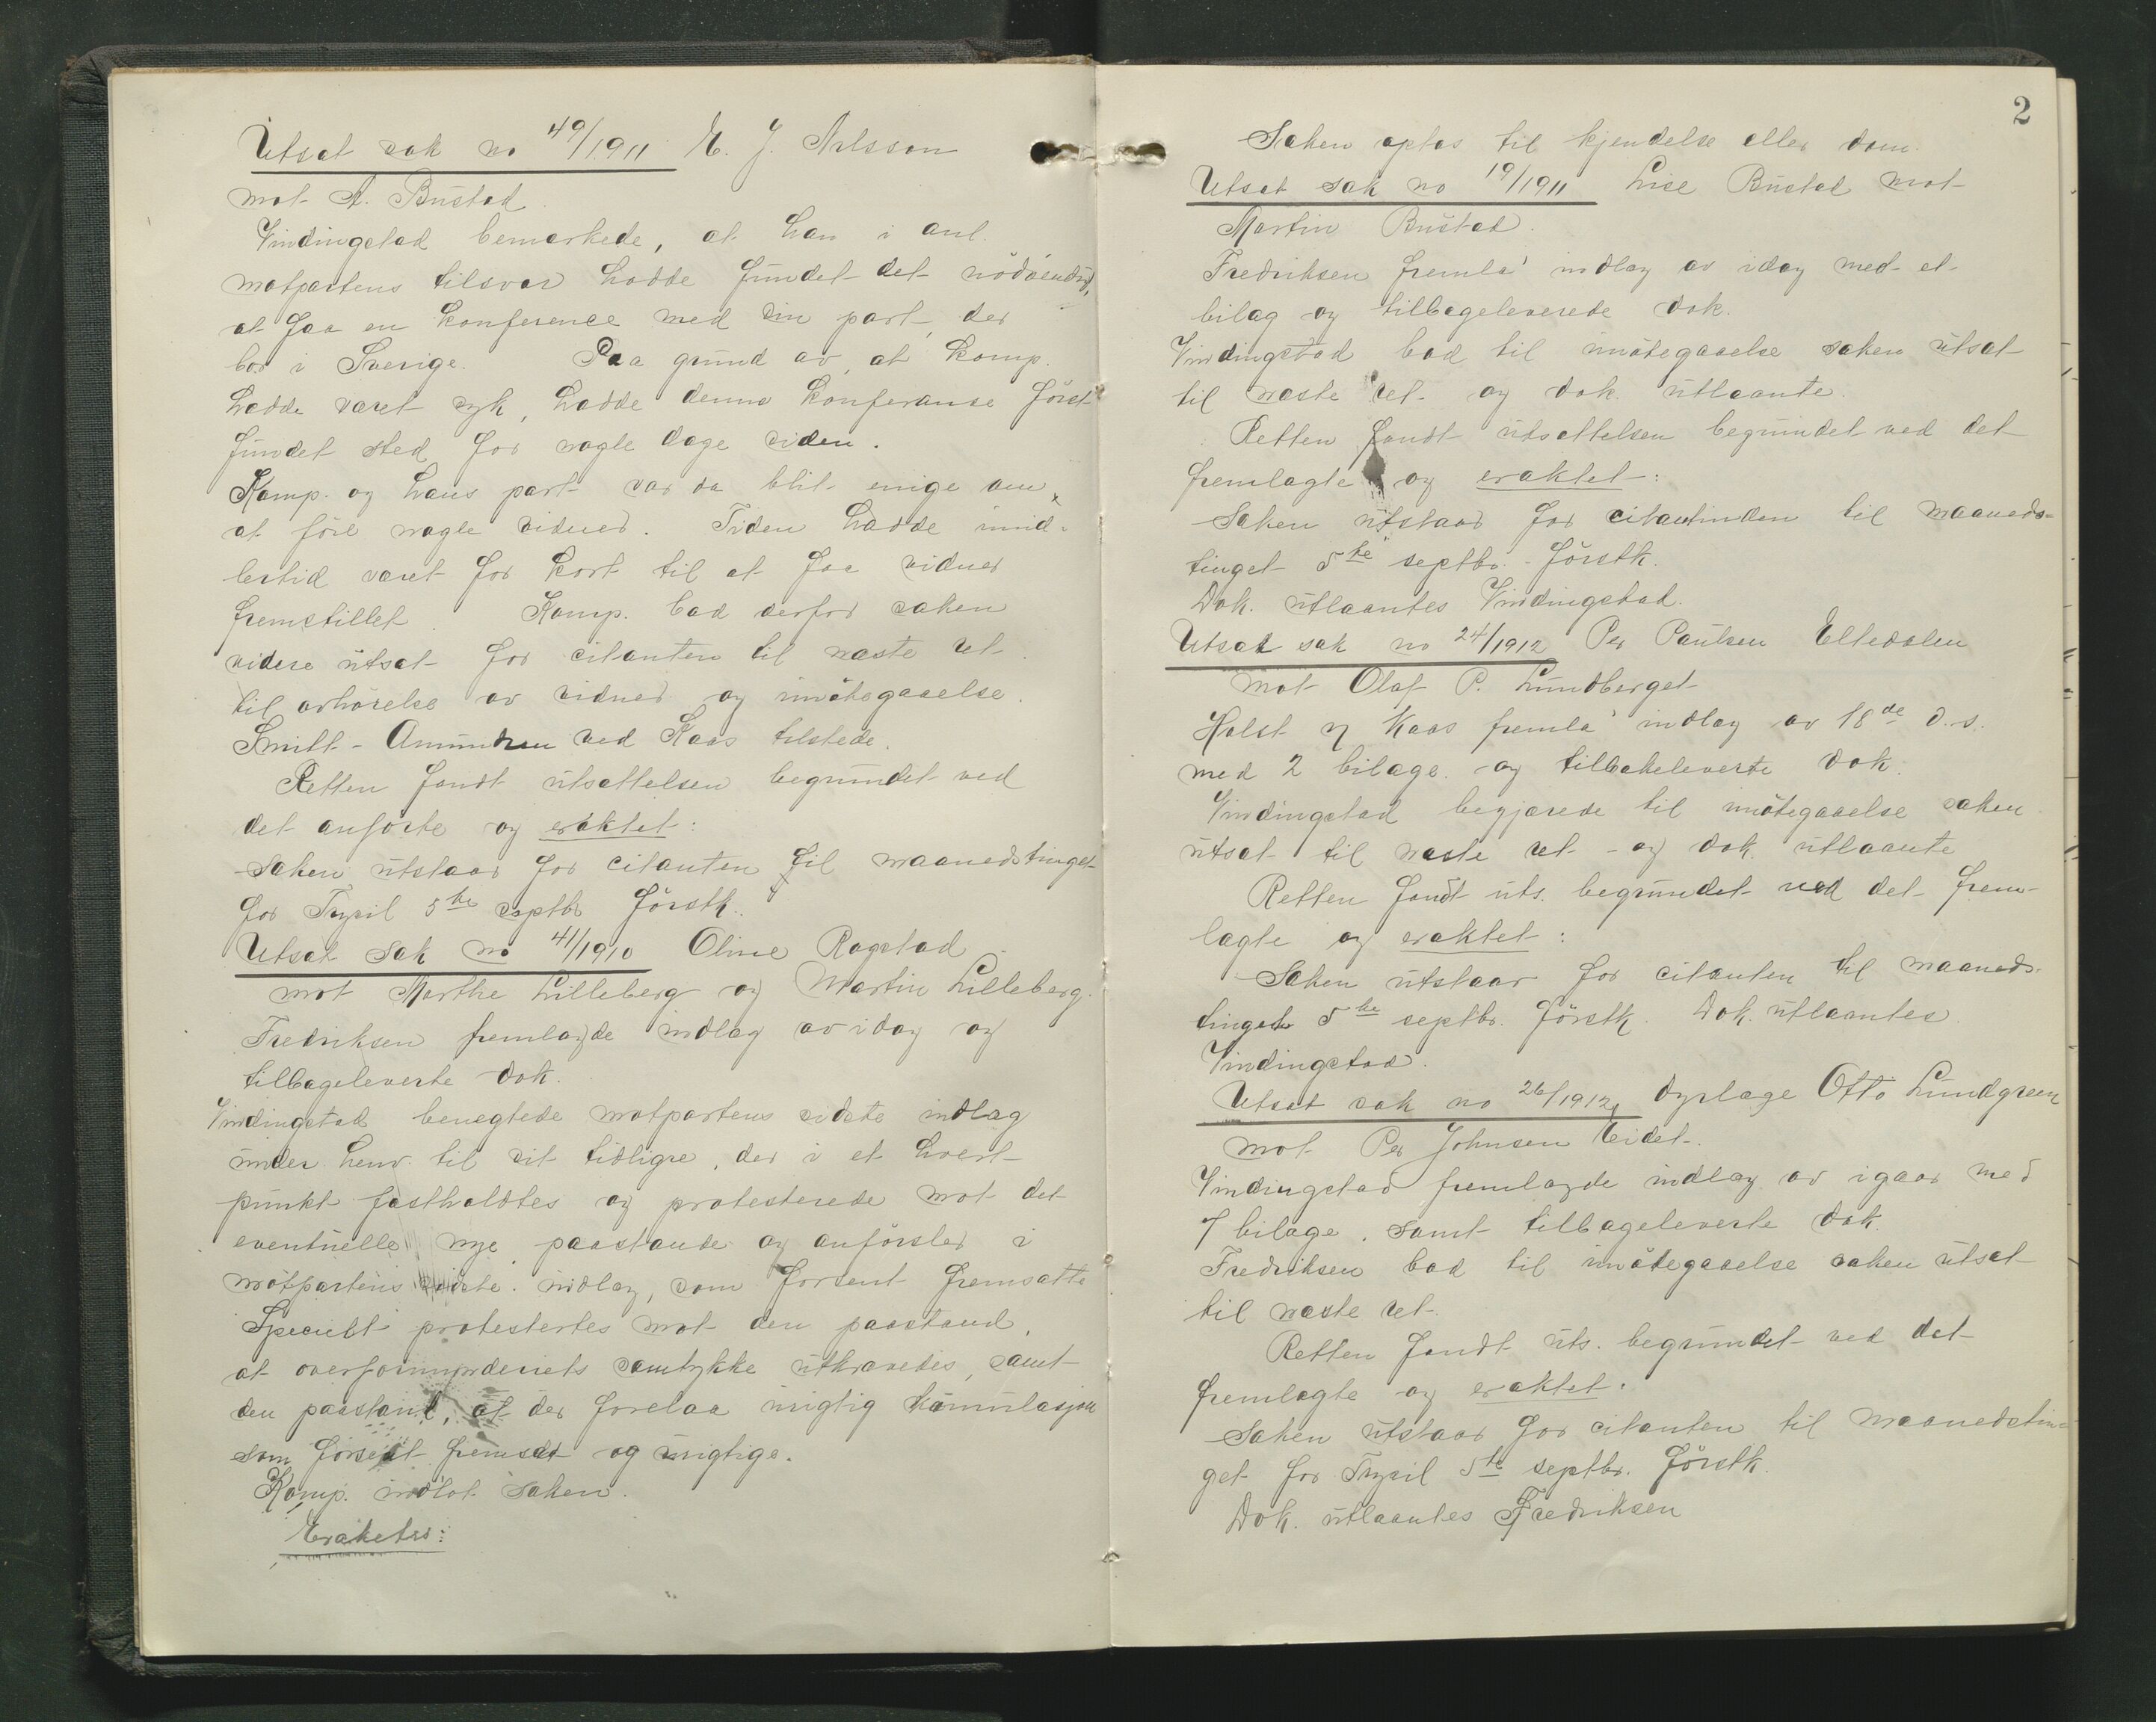 Utsat sak no 49/1911 E. J. Nilsson
mot A. Bustad.
Vindingstad bemerkede, at han i anl.
motpartens tilsvar hadde fundet det nödvendig,
at faa en konference med sin part, der
bor i Sverige. Paa grund av, at komp.
hadde været syk, hadde denne konferanse först
fundet sted for nogle dage siden.
Komp. og hans part var da blit enige om,
at före nogle vidner. Tiden hadde imid-
lertid været for kort til at faa vidner
fremstillet. Komp. bad derfor saken
videre utsat for citanten til næste ret
til avhörelse av vidner og imötegaaelse.
Smitt-Amundsen ved Kaas tilstede.
Retten fandt utsættelsen begrundet ved
det anförte og eraktet:
Saken utstaar for citanten til maanedstinget
for Trysil 5te septbr förstk.
Utsat sak no 41/1910 Oline Rogstad
mot Marthe Lilleberg og Martin Lilleberg.
Fredriksen fremlagde indlæg av idag og
tilbageleverte dok.
Vindingstad benegtede motpartens sidste indlæg
under henv. til sit tidligre, der i et hvert
punkt fastholdtes og protesterede mot det
eventuelle nye paastande og anförsler i
motpartens sidste indlæg, som forsent fremsatte
Specielt protestertes mot den paastand,
at overformynderiets samtykke utkrævedes, samt
den paastand, at der forelaa urigtig kumulasjon
som forsent fremsat og urigtige.
Komp. indlot saken.
Eraktetes:
2
Saken optas til kjendelse eller dom.
Utsat sak no 19/1911 Lise Bustad mot
Martin Bustad.
Fredriksen fremla' indlæg av idag med et
bilag og tilbageleverede dok.
Vindingstad bad til imötegaaelse saken utsat
til næste ret og dok. utlaante.
Retten fandt utsættelsen begrundet ved det
fremlagte og eraktet:
Saken utstaar for citantinden til maaneds-
tinget 5te septbr. förstk.
Dok. utlaantes Vindingstad.
Utsat sak no 24/1912 Per Paulsen Eltedalen
mot Olaf P. Lundberget
Holst og Kaas fremla' indlæg av 18de d.s.
med 2 bilage og tilbakeleverte dok.
Vindingstad begjærede til imötegaaelse saken
utsat til næste ret og dok. utlaante
Retten fandt uts. begrundet ved det frem-
lagte og eraktet:
Saken utstaar for citanten til maaneds-
tinget 5te septbr. förstk. Dok. utlaantes
Vindingstad.
Utsat sak no 26/1912, dyrlæge Otto Lundgreen
mot Per Johnsen Eidet.
Vindingstad fremlagde indlæg av igaar med
7 bilage, samt tilbageleverte dok.
Fredriksen bad til imötegaaelse saken utsat
til næste ret.
Retten fandt uts. begrundet ved det
fremlagte og eraktet:
Saken utstaar for citanten til maanedstin-
get for Trysil 5te septbr. förstk.
Dok. utlaantes Fredriksen